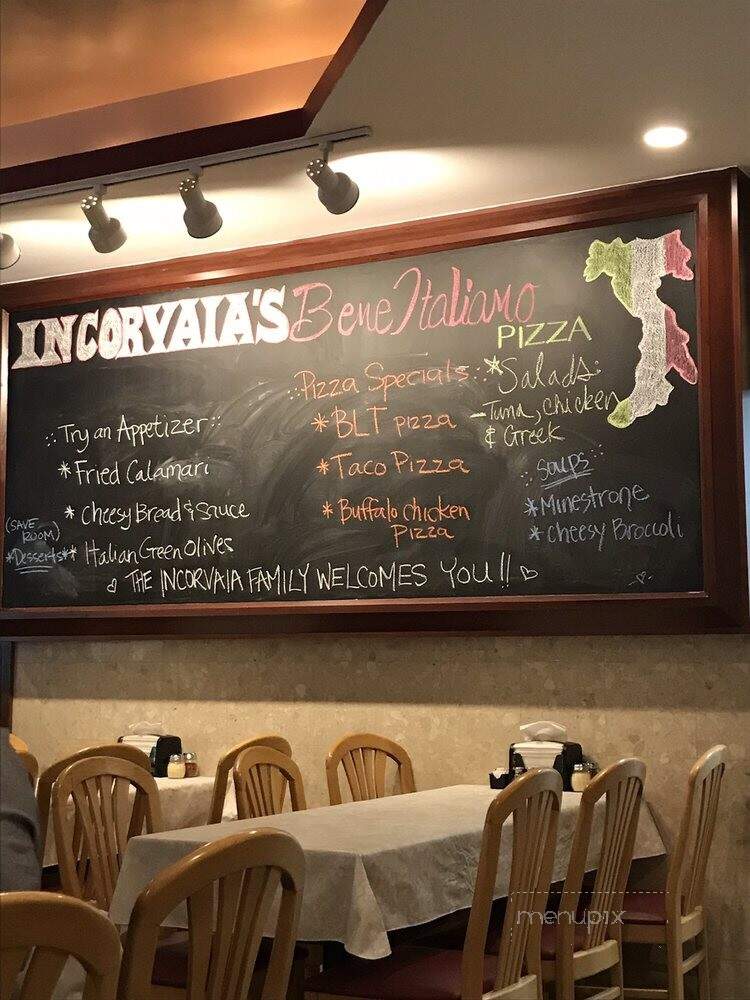 INCORVAIA'S Bene Italiano
PIZZA
Try an Appetizer
*Fried Calamari
*cheesy Bread & Sauce
*Italian Green Olives
(SAVE ROOM)
*Desserts*
Pizza Specials
*BLT pizza
*Taco Pizza
*Buffalo chicken
Pizza
*Salads:
-Tuna, chicken
& Greek
Soups
*Minestrone
*cheesy Broccoli
THE INCORVAIA FAMILY WELCOMES YOU!!
menupix